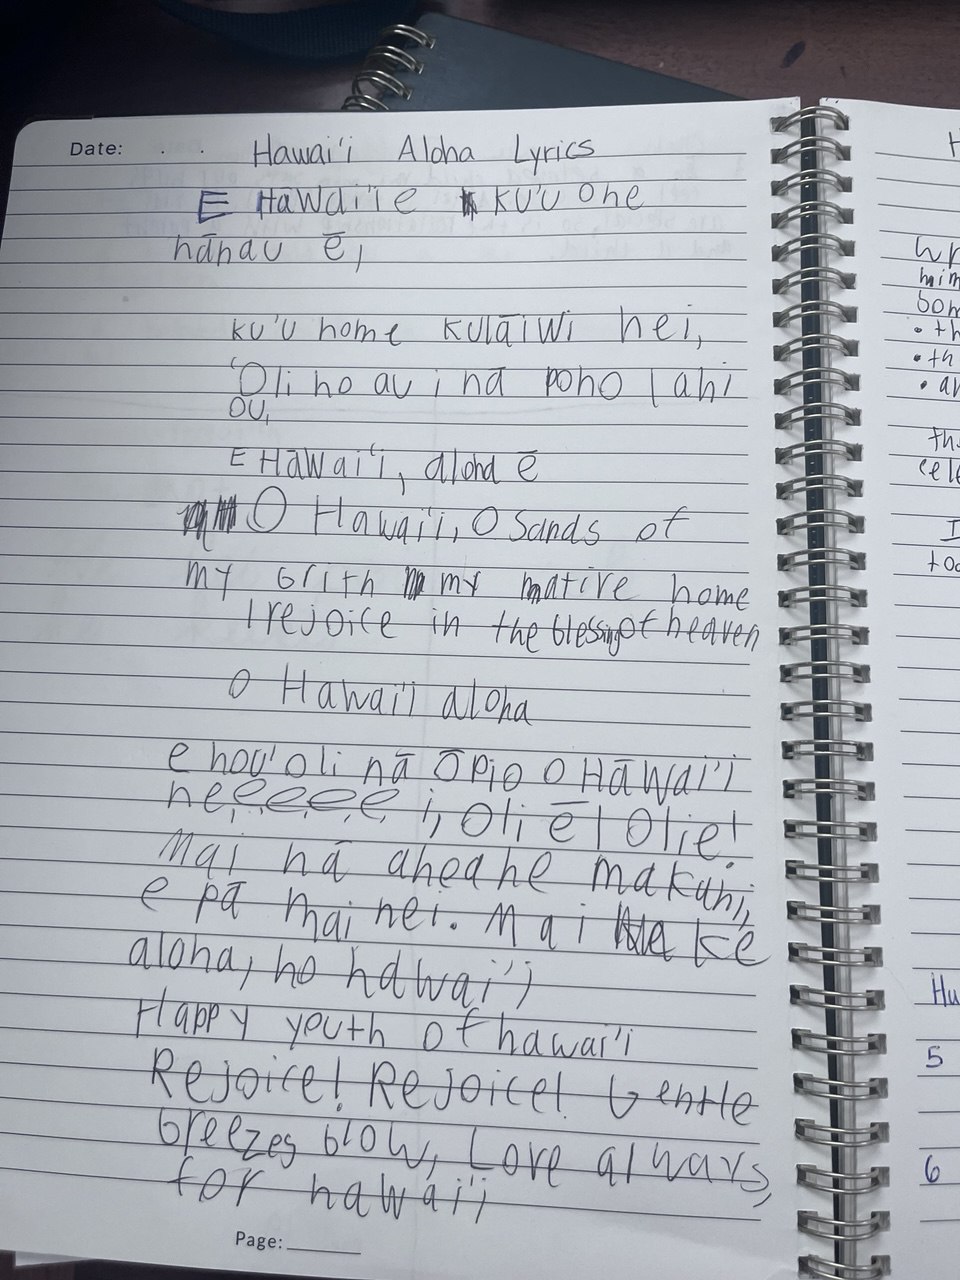 Date: . . Hawai'i Aloha Lyrics
E Hāwai'i e ku'u one
hānau ē,
ku'u home kulāiwi nei,
'Oli no au i nā pono lani
ou,
E Hāwai'i, aloha ē
O Hawai'i, O Sands of
my brith my native home
I rejoice in the blessing of heaven
O Hawai'i aloha
e hou'oli nā Ōpio O Hāwai'i
neeeee i, Oli ē! Olie!
Mai nā aheahe makani,
e pā mai nei. Mai ke
aloha, no hawai'i
Happy youth of hawai'i
Rejoice! Rejoice! Gentle
breezes blow, Love always,
for hawai'i
Page:
H
wr
mim
bom
• th
• th
• ar
the
cele
I
too
Hu
5
6